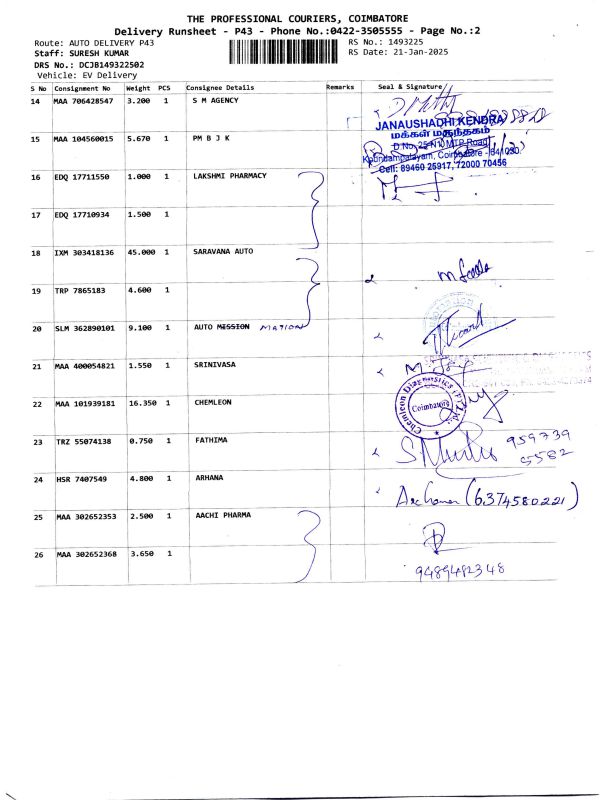 THE PROFESSIONAL COURIERS, COIMBATORE
Delivery Runsheet - P43 - Phone No.:0422-3505555 - Page No.:2
Route: AUTO DELIVERY P43 RS No.: 1493225
Staff: SURESH KUMAR RS Date: 21-Jan-2025
DRS No.: DCJB149322502
Vehicle: EV Delivery
S No Consignment No Weight PCS Consignee Details Remarks Seal & Signature
14 MAA 706428547 3.200 1 S M AGENCY
JANAUSHADHI KENDRA
மக்கள் மருந்தகம்
15 MAA 104560015 5.670 1 PM B J K
D.No. 25-N1, MTP Road,
Koundampalayam, Coimbatore - 641030.
Cell: 89460 25917, 72000 70456
16 EDQ 17711550 1.000 1 LAKSHMI PHARMACY
17 EDQ 17710934 1.500 1
18 IXM 303418136 45.000 1 SARAVANA AUTO
19 TRP 7865183 4.600 1
20 SLM 362890101 9.100 1 AUTO MISSION MATION
21 MAA 400054821 1.550 1 SRINIVASA
22 MAA 101939181 16.350 1 CHEMLEON
Chemleon Diagnostics (P) Ltd.
Coimbatore
23 TRZ 55074138 0.750 1 FATHIMA
959739
5582
24 HSR 7407549 4.800 1 ARHANA
Archana (6374580221)
25 MAA 302652353 2.500 1 AACHI PHARMA
26 MAA 302652368 3.650 1
9489482348